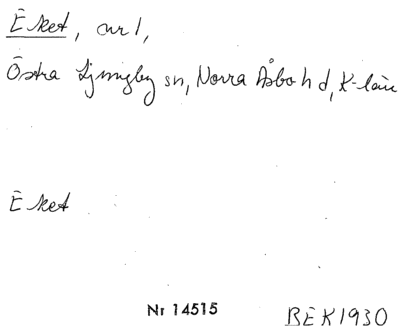 Ēsket, nr 1,
Östra Ljungby sn, Norra Åsbo hd, K-län
Ēsket
Nr 14515
BEK 1930